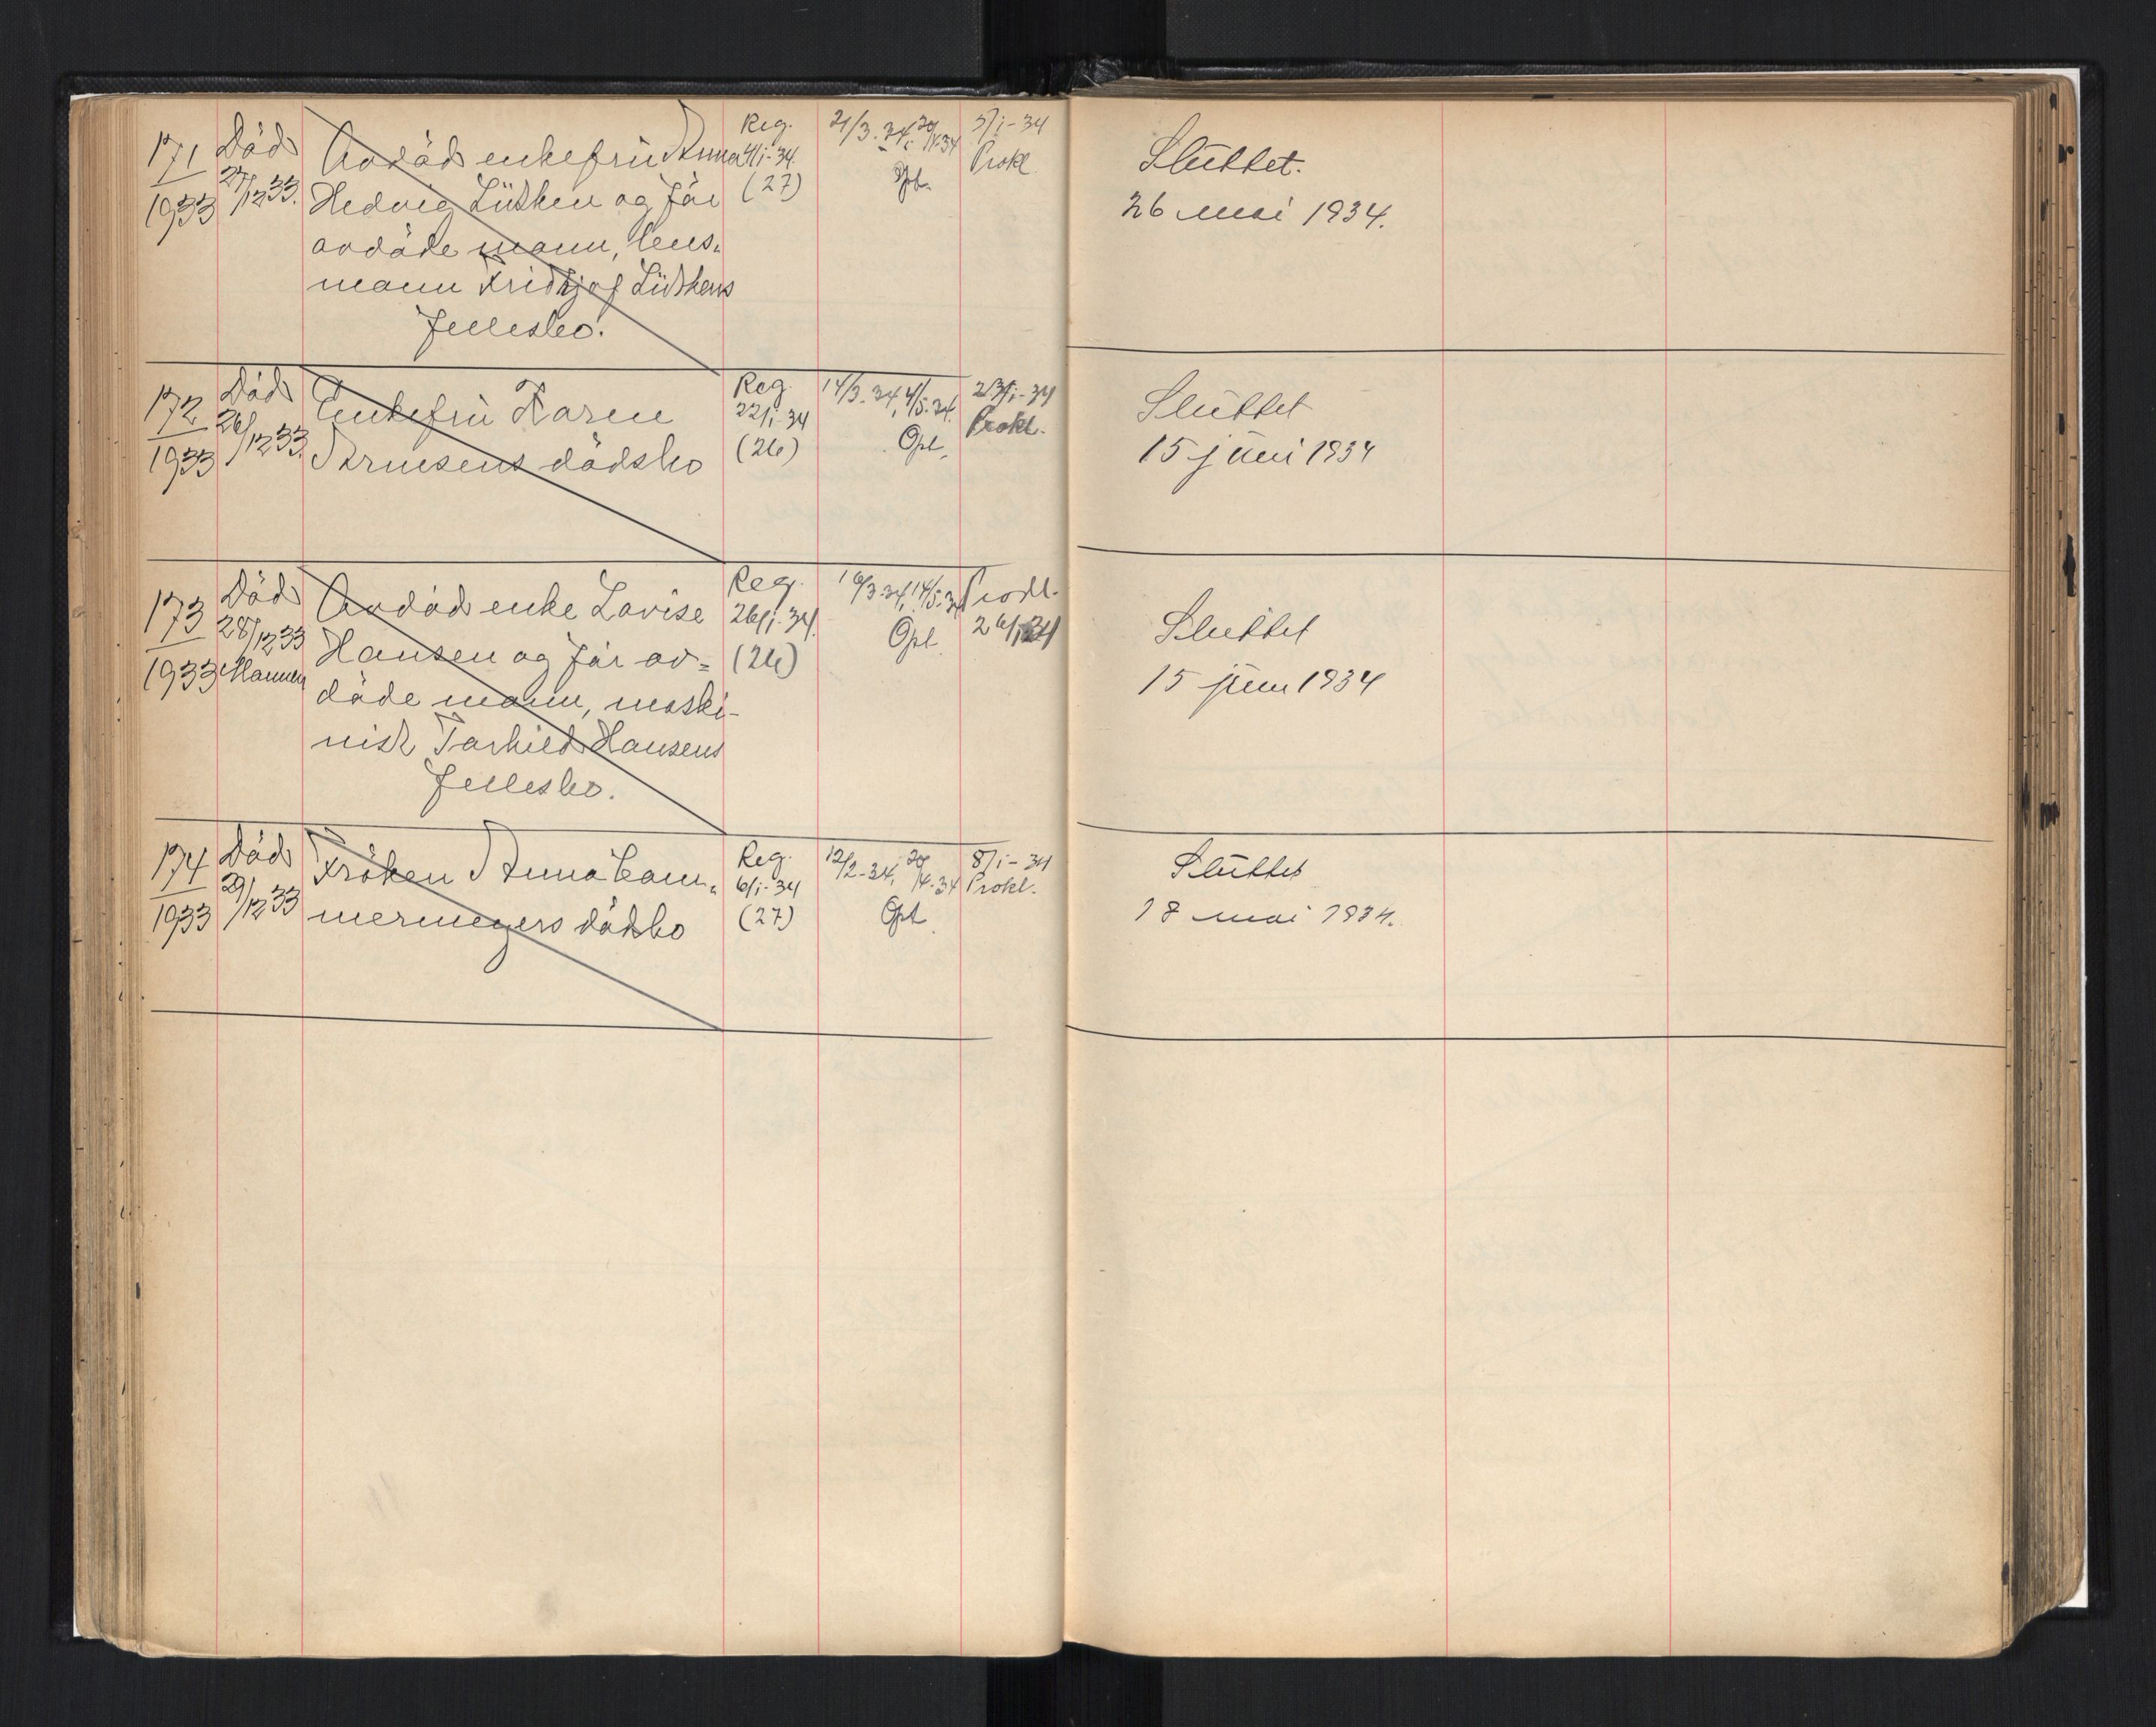 171
1933
Död
27/12 33.
Avdöd enkefrü Anna
Hedvig Lütken og för
avdöde mann, lens-
mann Fridtjof Lütkens
fellesbo.
Reg.
4/1-34.
(27)
21/3.34, 20/4-34
Opt.
5/1-34
Prokl.
Sluttet.
26 mai 1934.
172
1933
Död
26/12 33.
Enkefrü Karen
Arnesens dödsbo
Reg.
22/1-34
(26)
14/3.34, 4/5.34.
Opt.
23/1-34
Prokl.
Sluttet
15 juni 1934
173
1933
Död
28/12 33
Mannen
Avdöd enke Lovise
Hansen og för av-
döde mann, maski-
nist Tarkild Hansens
fellesbo.
Reg.
26/1-34.
(26)
16/3-34, 14/5-34
Opt.
Prokl.
26/1-34
Sluttet
15 juni 1934
174
1933
Död
29/12 33
Fröken Anna Cam-
mermeyers dödsbo
Reg.
6/1-34
(27)
12/2-34, 20/4-34
Opt.
8/1-34
Prokl.
Sluttet
18 mai 1934.